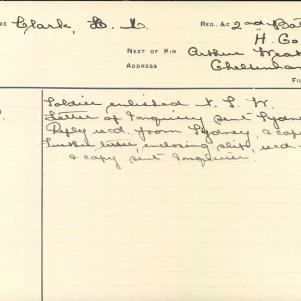 RE Clark, L. L. REG. &C 2nd Bat
H. Co
NEXT OF KIN Arthur Weat
ADDRESS Cheltenham
FI
Soldier enlisted N. S. W.
Letter of Inquiry sent Sydne
Reply recd. from Sydney, & cop
Further letter, enclosing slip, recd.
& copy sent Inquirer.